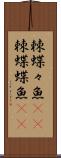 棘蝶々魚
棘蝶蝶魚